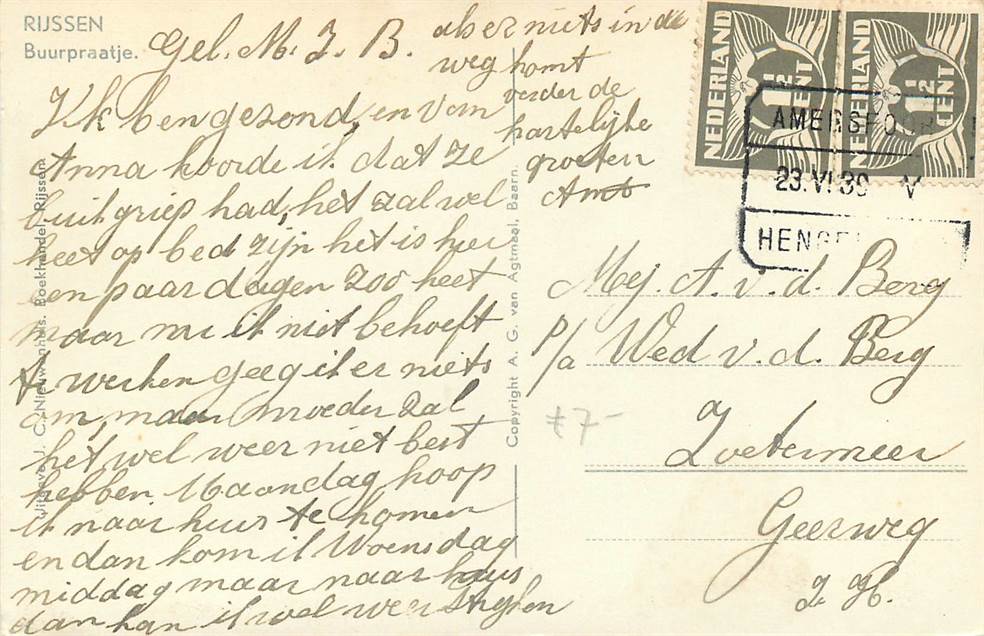 RIJSSEN
Buurpraatje.
Gel. M. J. B.
Ik ben gezond, en van
Anna hoorde ik dat ze
buikgriep had, het zal wel
heet op bed zijn het is hier
een paar dagen zoo heet
maar nu ik niet behoeft
te werken geeg ik er niets
om, maar moeder zal
het wel weer niet best
hebben Maandag hoop
ik naar huis te komen
en dan kom ik Woensdag
middag maar naar huys
dan kan ik wel weer
als er niets in de
weg komt
verder de
hartelijke
groeten
Uitgave J. C. Nieuwenhuis. Boekhandel Rijssen
Copyright A. G. van Agtmaal, Baarn.
NEDERLAND
1½
CENT
NEDERLAND
1½
CENT
AMERSFOOR
23.VI.39 V
HENGEL
Mej. A. v. d. Berg
p/a Wed v. d. Berg
Zoetermeer
Geerweg
Z. H.
±7-